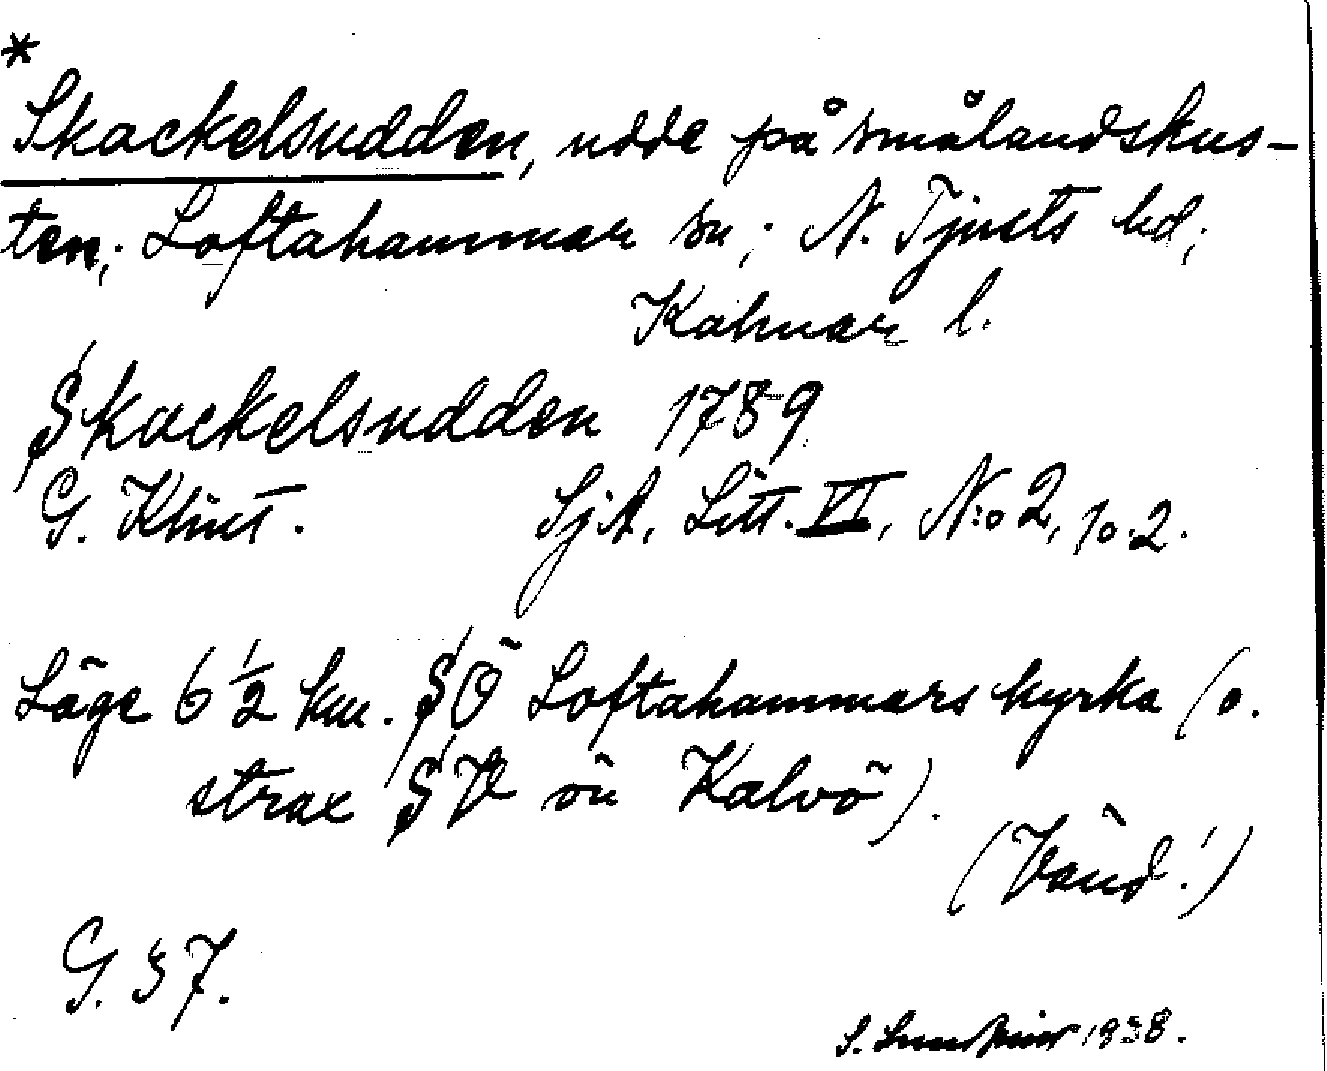 *
Skackelsudden, udde på smålandskus-
ten; Loftahammar sn; N. Tjusts hd;
Kalmar l.
Skackelsudden 1789
G. Klint. SjA, Litt. VI, N:o 2, 10.2.
Läge 6 1/2 km. SÖ Loftahammars kyrka (o.
strax SV ön Kalvö).
(Vänd!)
G. 37.
S. 1938.